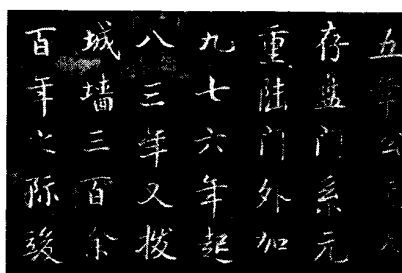 五年公
存盘门系元
重陆门外加
九七六年起
八三年又拨
城墙三百余
百年之际竣